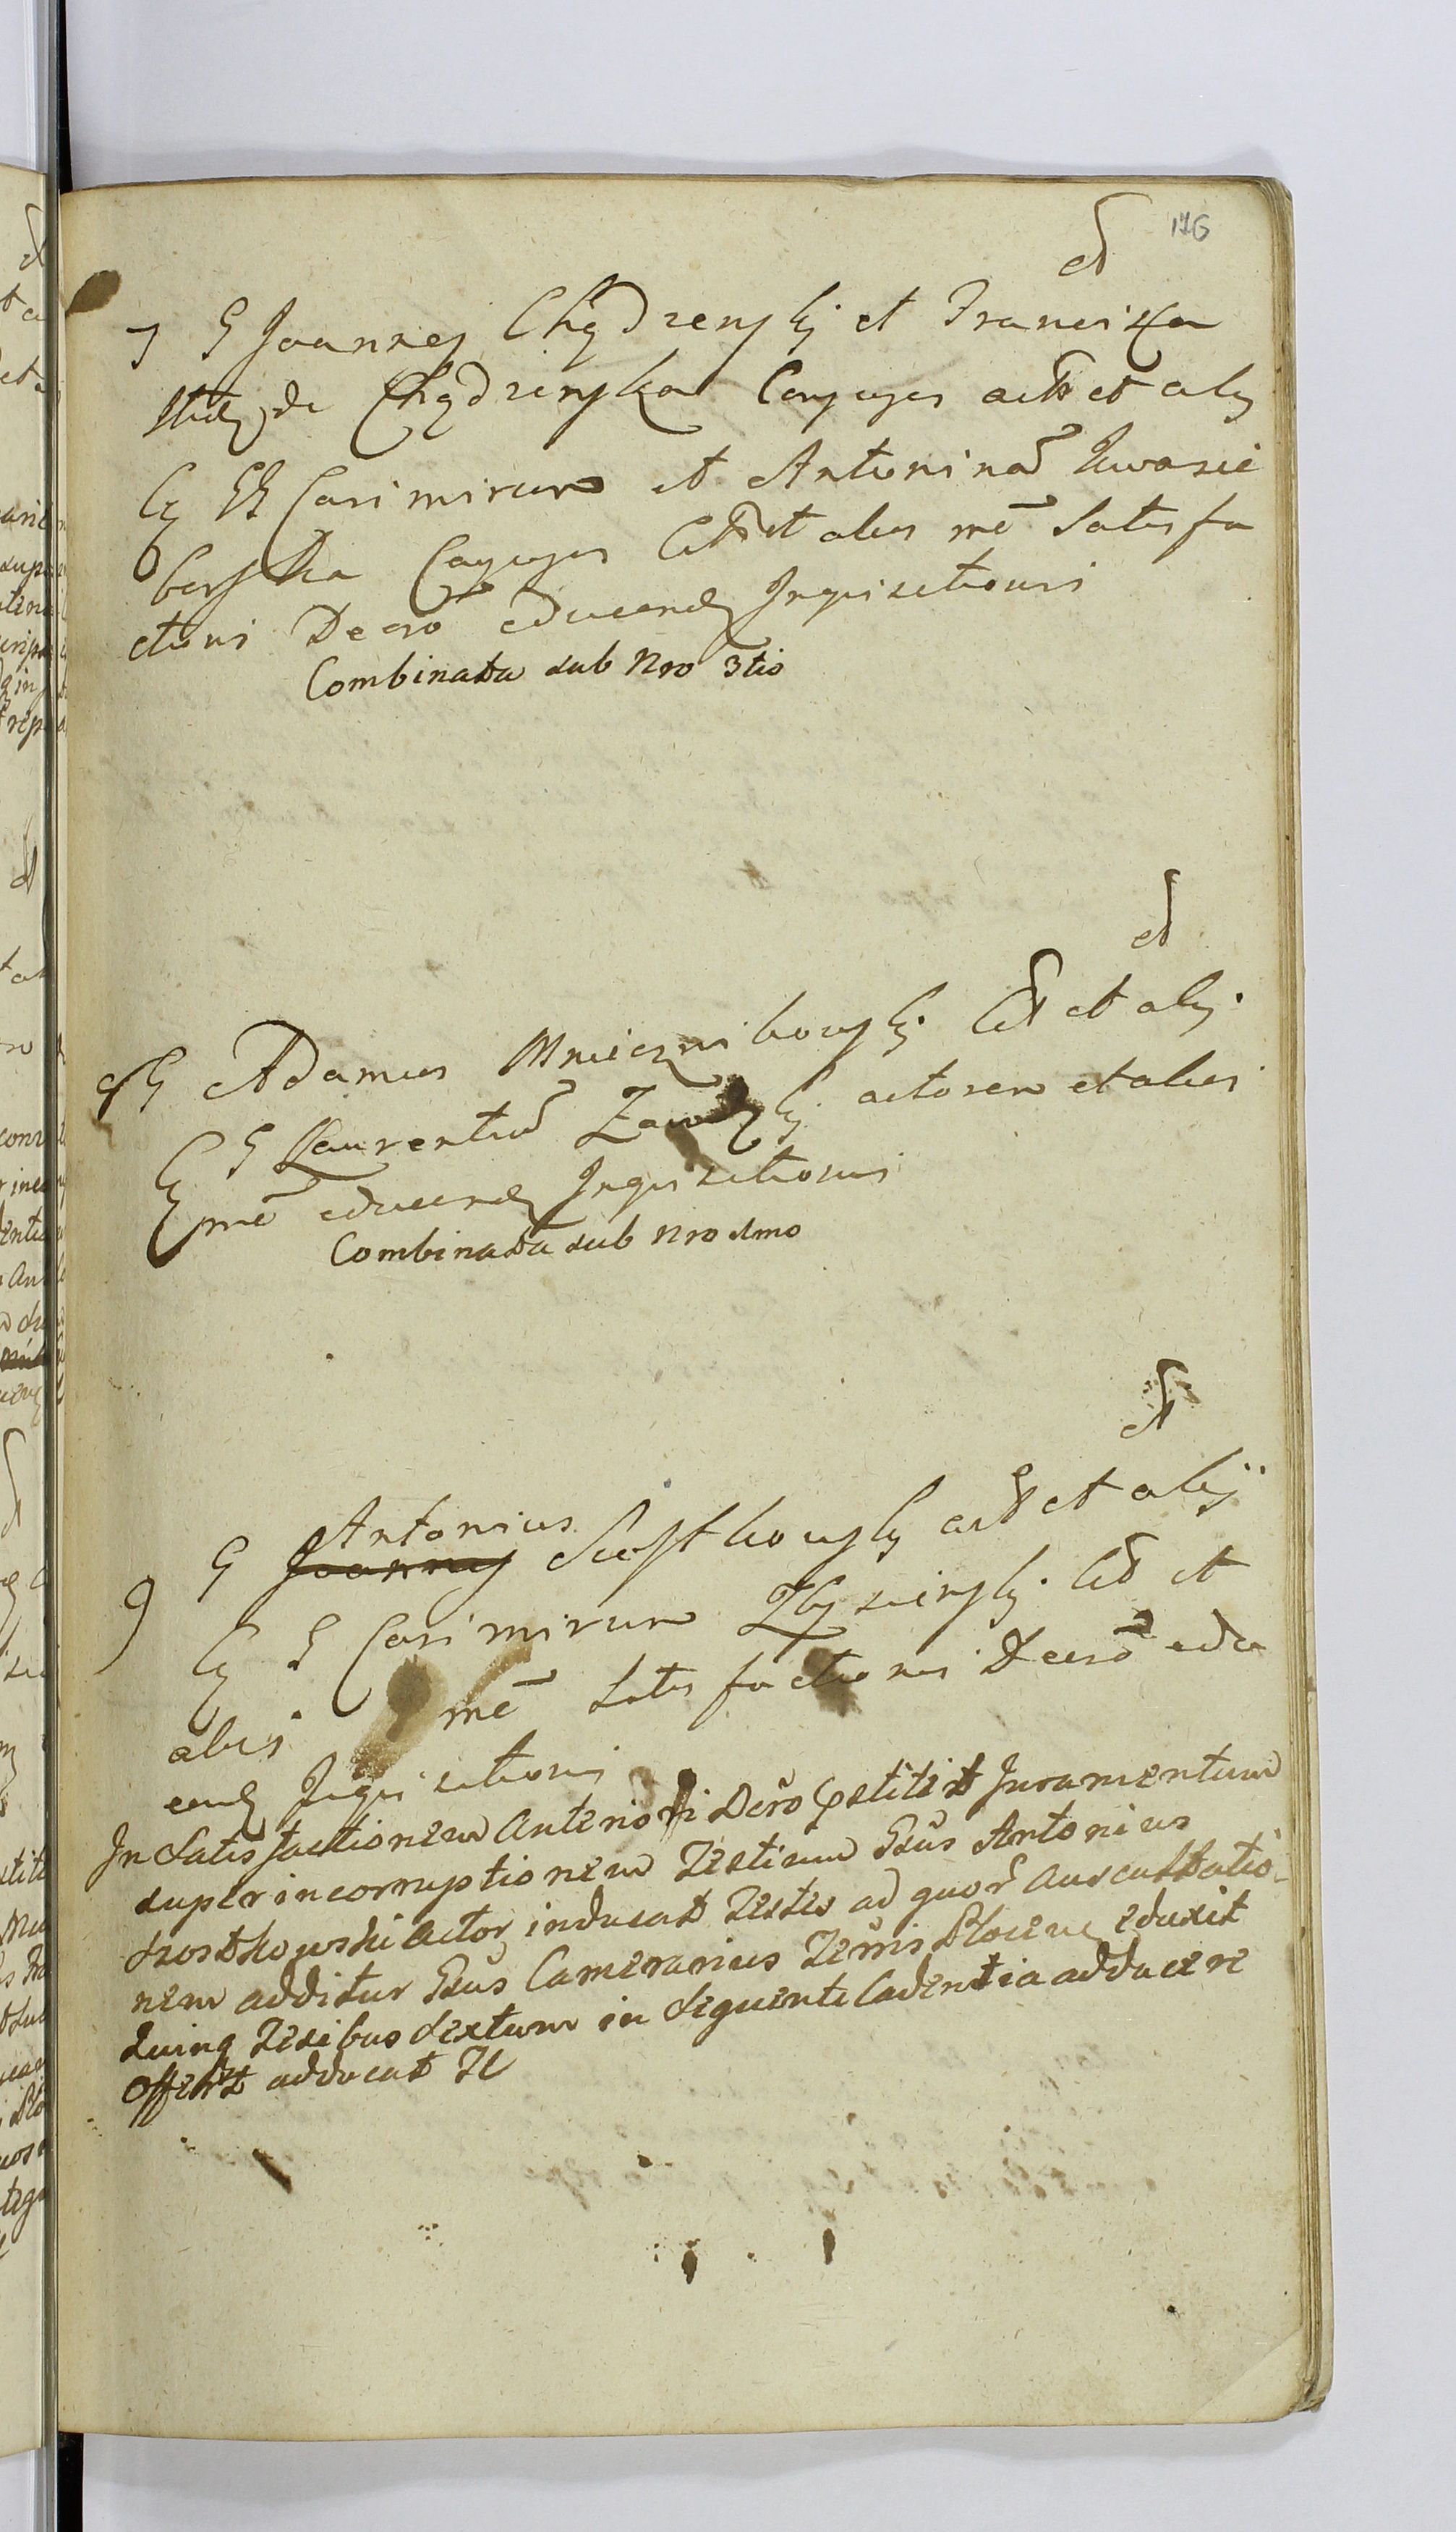 176
ct
7 G Joannes Chądzenskj et Francisca
de Chądzenska Conjuges act et alij
Cz GG Casimirum et Antonina Kwasie
borska Conjuges Cit et alios me Satisfa
ctioni Decro educend Inquisitioni
Combinata sub Nro 3tio
ct
8 G Adamus Mniczni kowskj. Cit et alij.
Cz G Laurentiu Zaw kj. actorem et alios
me educend Inquisitionis
Combinata sub Nro 1mo
ct
Antonius
9 G Joannes Szostkowskj act et alij
Cz G Casimirum Zbyszinskj. Cit et
alios me Satisfactioni Decro edu
cend Inquisitioni
In Satisfactionem Anteriori Decro petitit Juramentum
super incorruptionem Testium Gsus Antonius
Szostkowski Actor, inducat Testes ad quor Auscultatio-
nem additur Gsus Camerarius Terris Plocens, eduxit
Quinq Tesibus sextum in Sequenti Cadentia adducere
Offert adducat Te